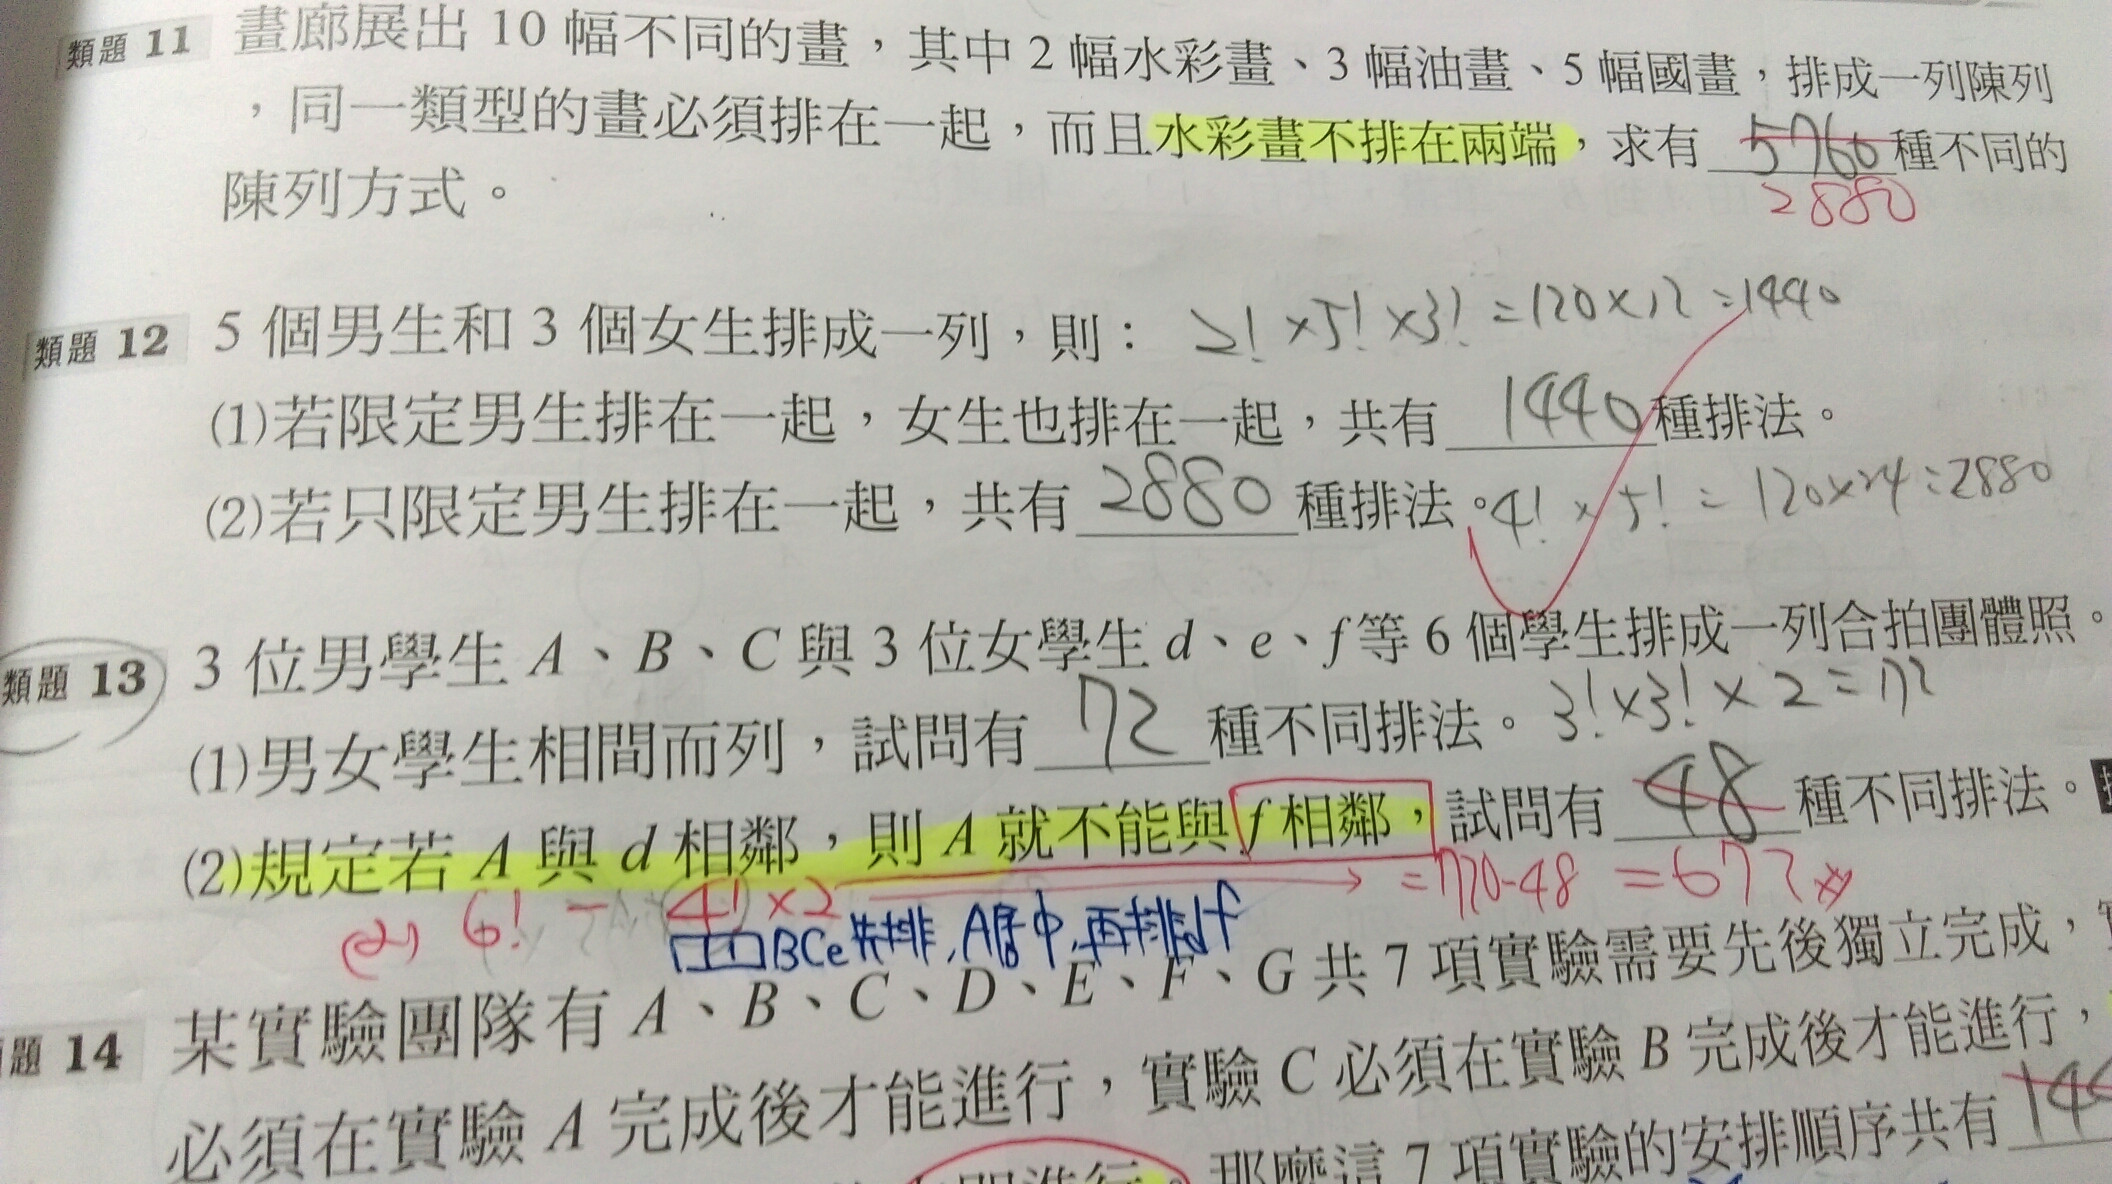 類題 11 畫廊展出 10 幅不同的畫，其中 2 幅水彩畫、3 幅油畫、5 幅國畫，排成一列陳列
，同一類型的畫必須排在一起，而且水彩畫不排在兩端，求有 5760 種不同的
2880
陳列方式。
類題 12 5 個男生和 3 個女生排成一列，則： 2! ×5! ×3! =120×12 =1440
(1)若限定男生排在一起，女生也排在一起，共有 1440 種排法。
(2)若只限定男生排在一起，共有 2880 種排法。4! × 5! = 120×24=2880
類題 13 3 位男學生 A、B、C 與 3 位女學生 d、e、f 等 6 個學生排成一列合拍團體照。
(1)男女學生相間而列，試問有 72 種不同排法。3!×3!×2=72
(2)規定若 A 與 d 相鄰，則 A 就不能與 f 相鄰，試問有 48 種不同排法。
(2) 6! - 4! ×2 =720-48 =672
BCe先排，A居中，再排df
題 14 某實驗團隊有 A、B、C、D、E、F、G 共 7 項實驗需要先後獨立完成，
必須在實驗 A 完成後才能進行，實驗 C 必須在實驗 B 完成後才能進行，
那麼這 7 項實驗的安排順序共有